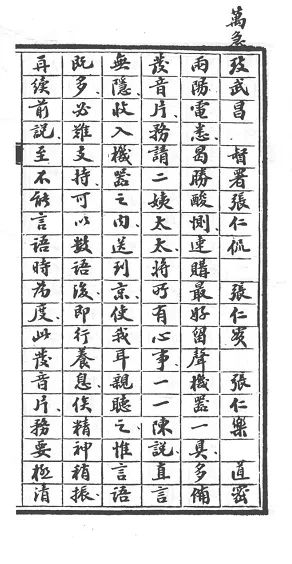 萬急
致武昌 督署張仁侃 張仁實 張仁樂 道密
兩陽電悉曷勝酸惻速購最好留聲機器一具多備
發音片、務請二姨太太、將所有心事、一一陳說、直言
無隱、收入機器之內送到京、使我耳親聽之、惟言語
既多、必難支持、可以數語後、即行養息、俟精神稍振、
再續前說、至不能言語時為度、此發音片、務要極清